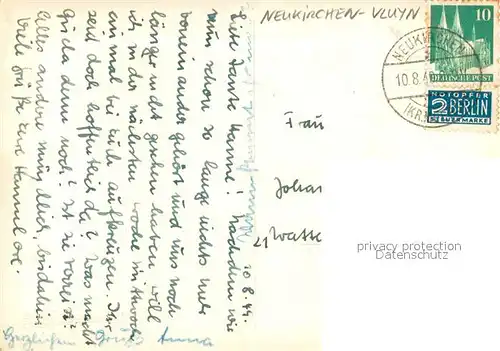 NEUKIRCHEN-VLUYN
10
DEUTSCHE POST
NOTOPFER
2 BERLIN
STEUERMARKE
NEUKIRCHEN
10.8.4
(KR.
Frau
Johan
21 Watte
privacy protection
Datenschutz
10.8.49.
Liebe Tante Hanne! Nachdem wir
nun schon so lange nichts mehr
voneinander gehört und uns noch
länger nicht gesehen haben, will
ich in der nächsten Woche Mittwoch
einmal bei Euch aufkreuzen. Ihr
seid doch hoffentlich da? Was macht
denn noch? Ist sie
Alles andere mündlich, bis dahin
viele Grüße Eure Hannelore.
Herzlichen Gruß Anna